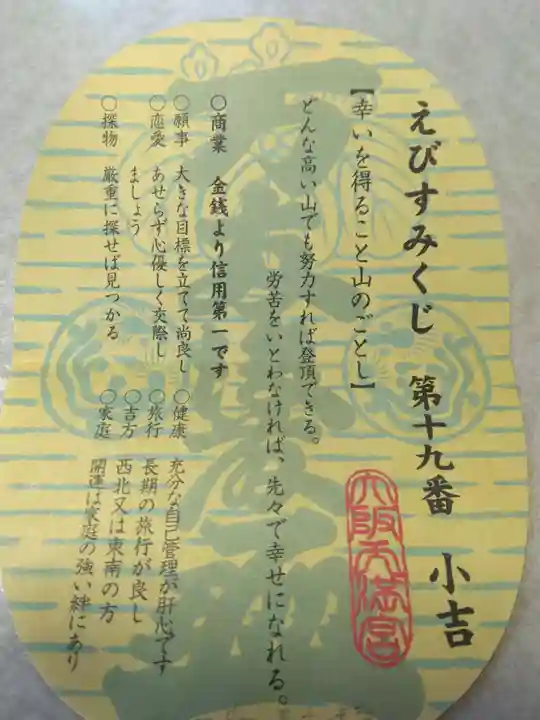 えびすみくじ 第十九番 小吉
大阪天満宮
【幸いを得ること山のごとし】
どんな高い山でも努力すれば登頂できる。
労苦をいとわなければ、先々で幸せになれる。
○商業 金銭より信用第一です
○願事 大きな目標を立てて尚良し
○恋愛 あせらず心優しく交際し
ましょう
○探物 厳重に探せば見つかる
○健康 充分な自己管理が肝心です
○旅行 長期の旅行が良し
○吉方 西北又は東南の方
○家庭 開運は家庭の強い絆にあり